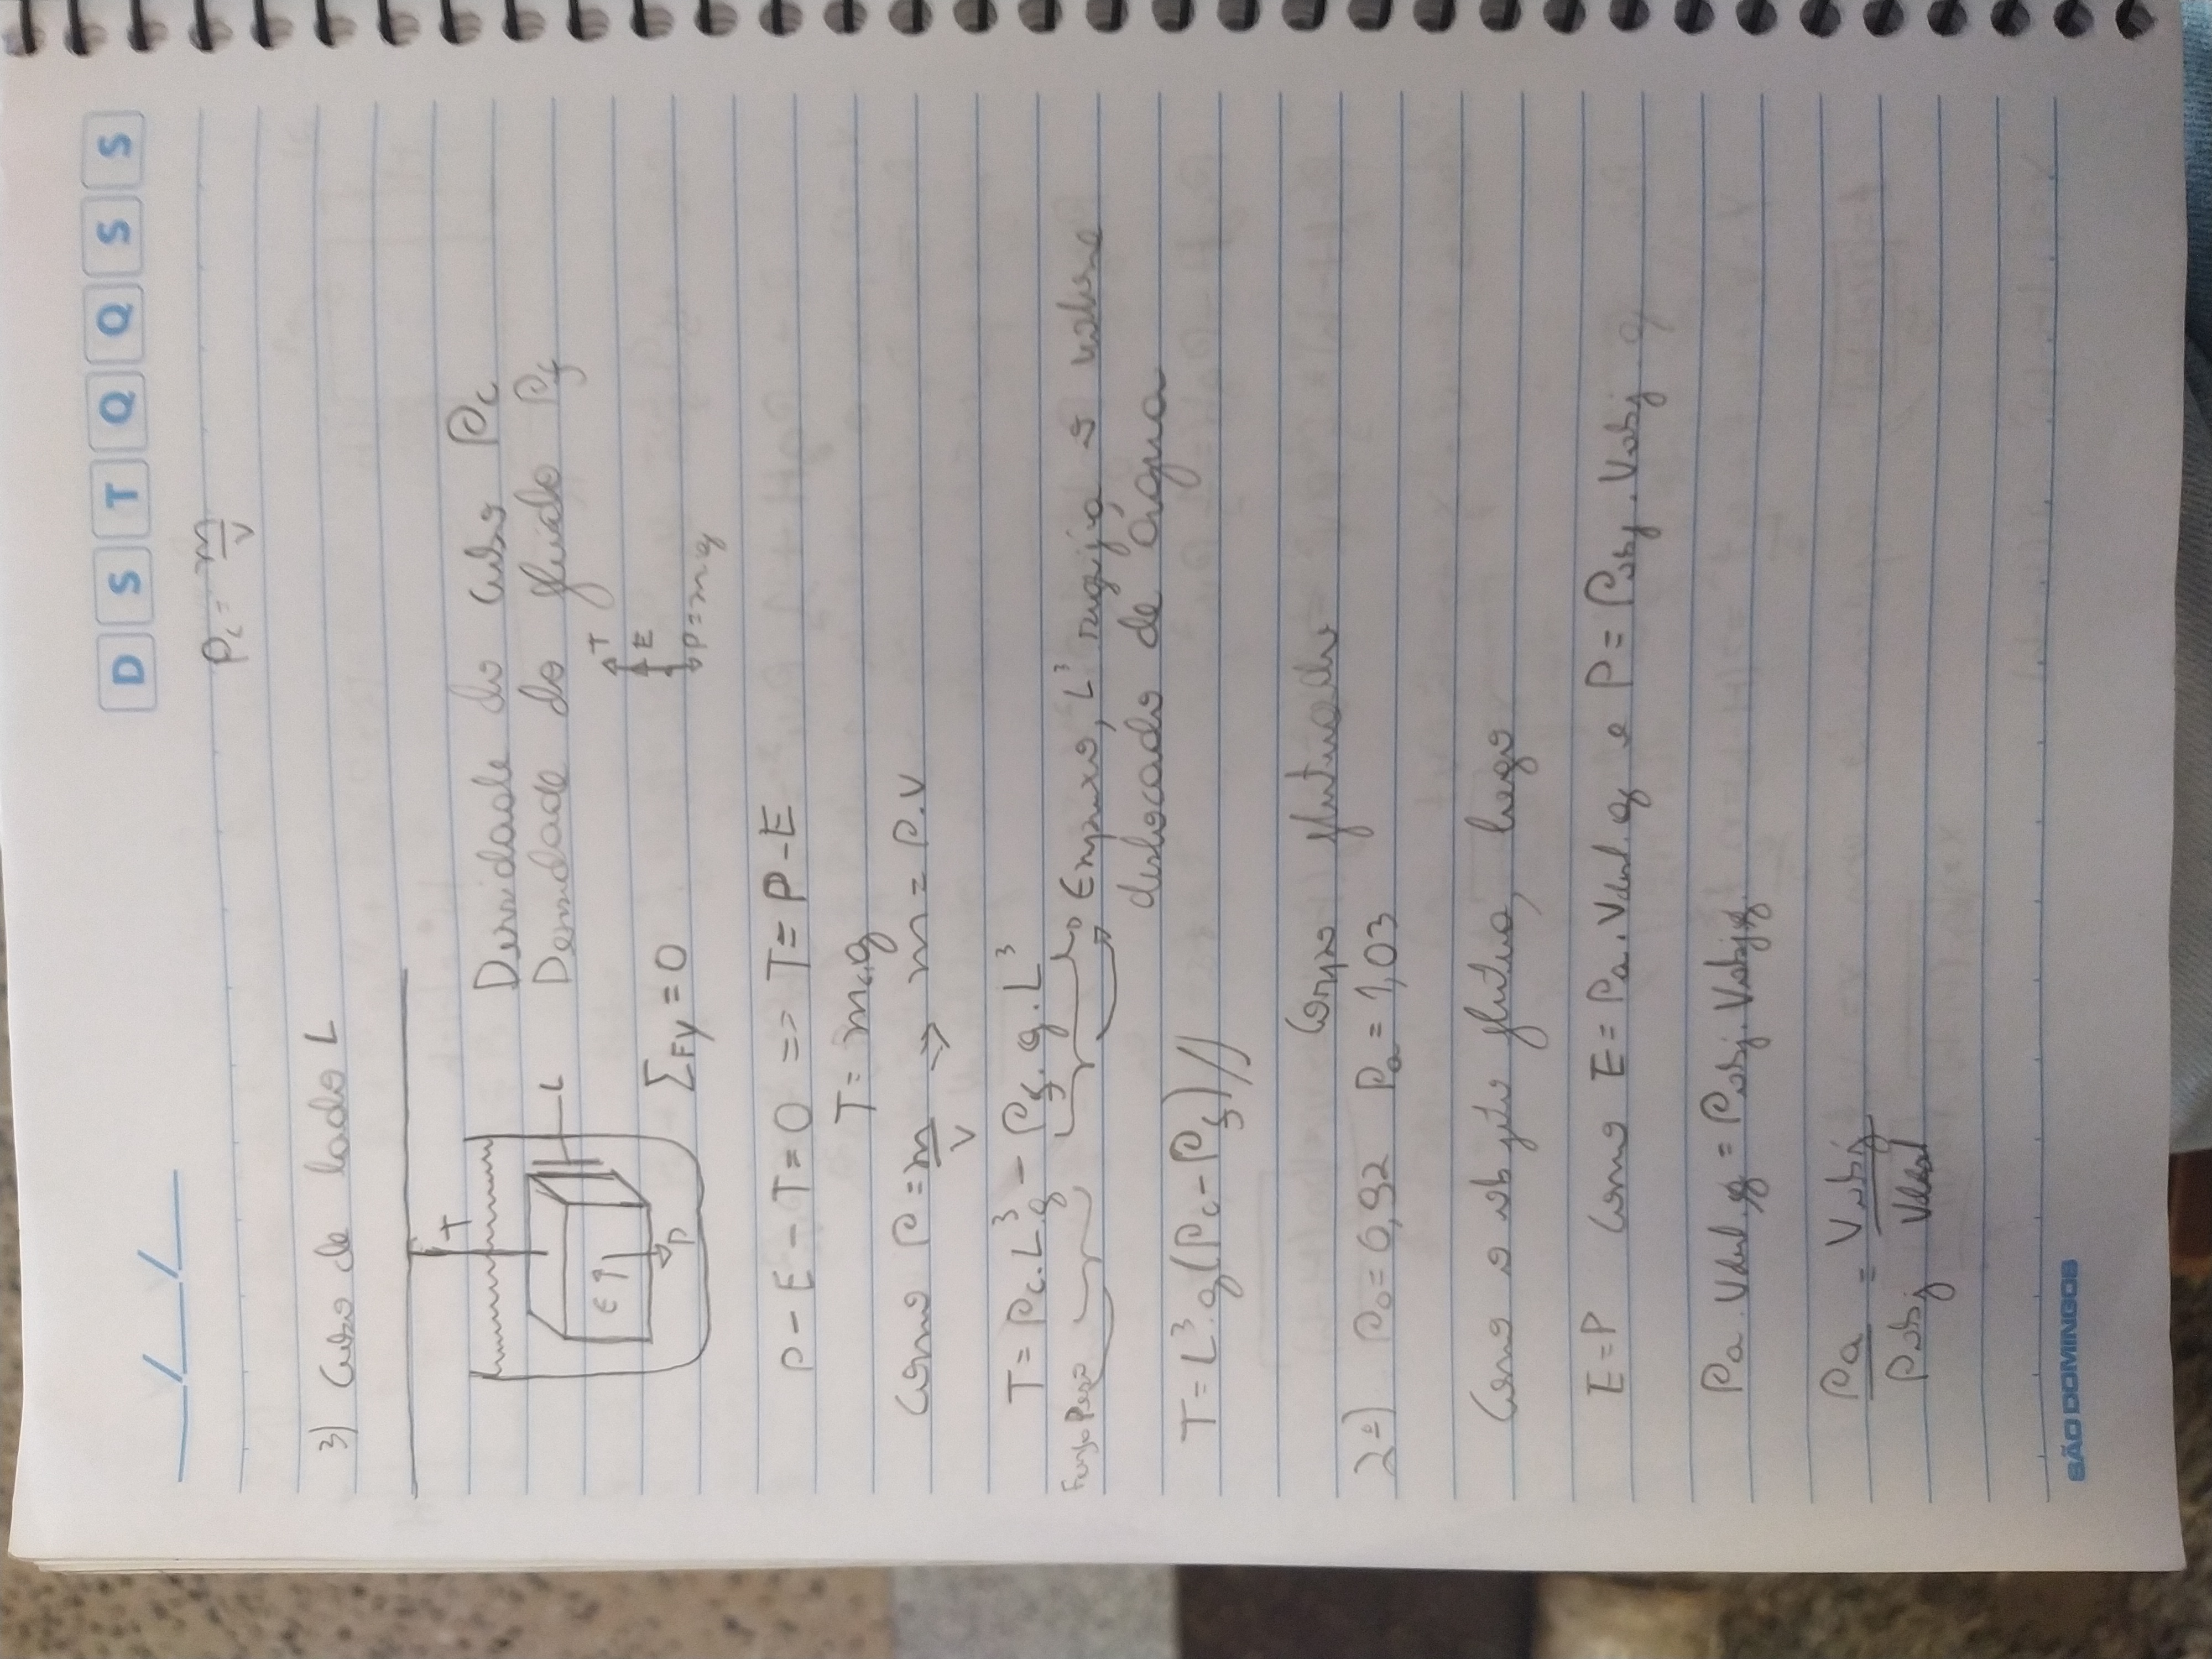 __/__/__ D S T Q Q S S
ρc = m/V
3) Cubo de lado L
T
Densidade do cubo ρc
L Densidade do fluido ρf
E
P
ΣFy = 0
T
E
P=mg
P - E - T = 0 => T = P - E
T = m.g
Como ρ = m/V => m = ρ.V
T = ρc.L³.g - ρf.g.L³
Força Peso
Empuxo, L³ seja o volume
deslocado de água
T = L³.g(ρc - ρf)//
Corpo flutuando
2º) ρo = 0,92 ρa = 1,03
Como o objeto flutua, logo
E = P Como E = ρa.Vdesl.g e P = ρobj.Vobj g
ρa.Vdesl.g = ρobj.Vobj.g
ρa/ρobj = Vobj/Vdesl
SÃO DOMINGOS